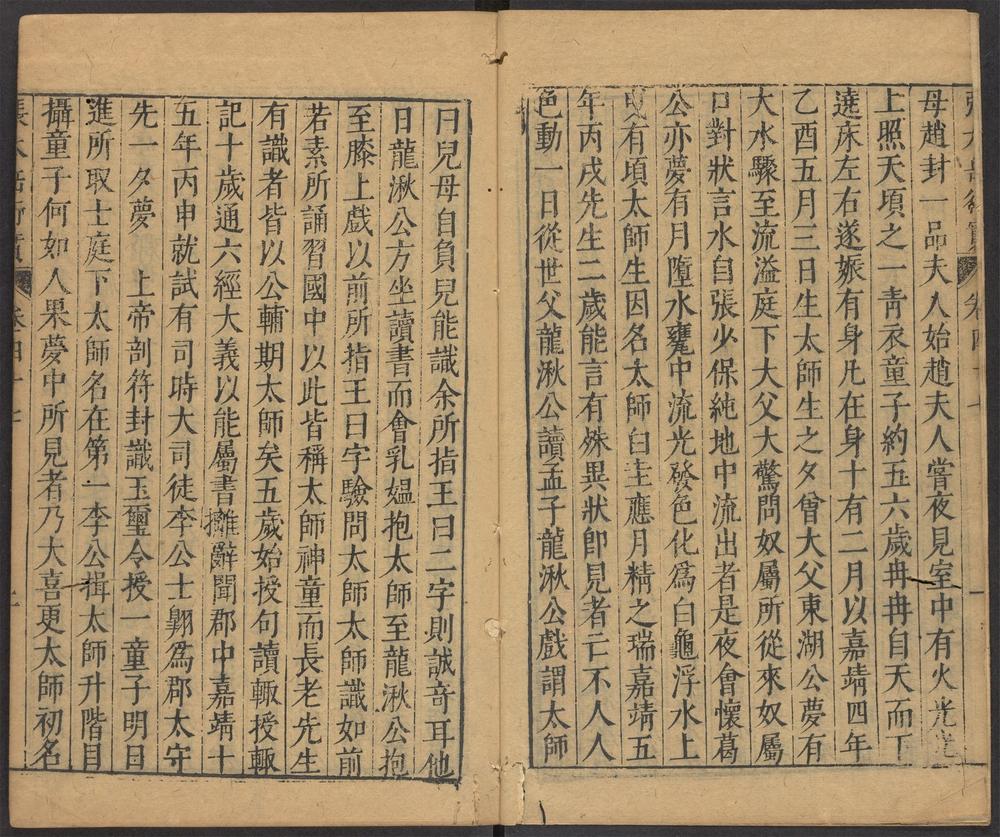 母趙封一品夫人始趙夫人嘗夜見室中有火光
上照天頃之一青衣童子約五六歲冉冉自天而下
遶床左右遂娠有身凡在身十有二月以嘉靖四年
乙酉五月三日生太師生之夕曾大父東湖公夢有
大水驟至流溢庭下大父大驚問奴屬所從來奴屬
口對狀言水自張少保純地中流出者是夜會懷葛
公亦夢有月墮水甕中流光發色化為白龜浮水上
有頃太師生因名太師白圭應月精之瑞嘉靖五
年丙戌先生二歲能言有殊異狀即見者亡不人人
色動一日從世父龍湫公讀孟子龍湫公戲謂太師
曰兒母自負兒能識余所指王曰二字則誠奇耳他
日龍湫公方坐讀書而會乳媼抱太師至龍湫公抱
至膝上戲以前所指王曰字驗問太師太師識如前
若素所誦習國中以此皆稱太師神童而長老先生
有識者皆以公輔期太師矣五歲始授句讀輙授輙
記十歲通六經大義以能屬書攡辭聞郡中嘉靖十
五年丙申就試有司時大司徒李公士翱為郡太守
先一夕夢　上帝剖符封識玉璽令授一童子明日
進所取士庭下太師名在第一李公揖太師升階目
攝童子何如人果夢中所見者乃大喜更太師初名